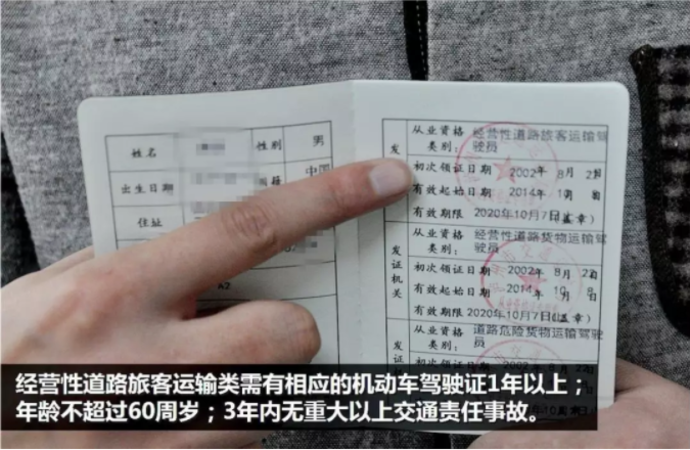 姓名
性别
男
出生日期
国籍
中国
住址
A2
从业资格
类别:
经营性道路旅客运输驾
驶员
发
初次领证日期 2002年 8月 2日
有效起始日期 2014年 10月 8日
有效期限 2020年10月7日(盖章)
从业资格
类别:
经营性道路货物运输驾
驶员
发证机关
初次领证日期 2002年 8月 2日
有效起始日期 2014年 10月 8日
有效期限 2020年10月7日(盖章)
从业资格
类别:
道路危险货物运输驾驶
员
经营性道路旅客运输类需有相应的机动车驾驶证1年以上;
年龄不超过60周岁;3年内无重大以上交通责任事故。